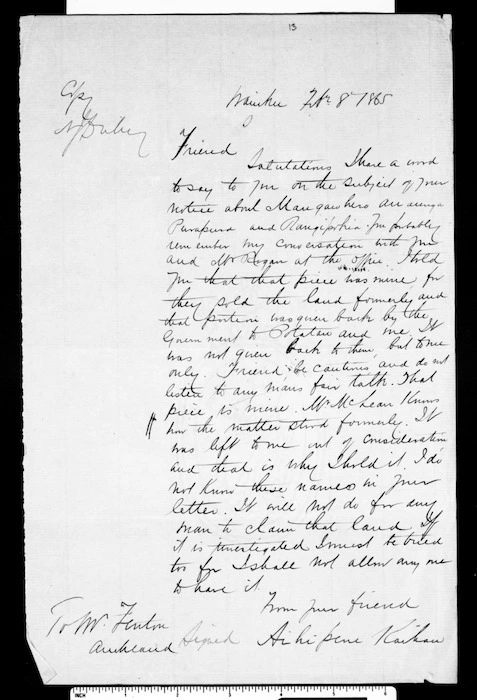 13
Copy
Feby 8th 1865
Friend
Salutations I have a word
to say to you on the subject of your
notice about
and Rangipohia You probably
remember my conversation with you
and Mr Rogan at the office. I told
you that that piece was mine for
they sold the land formerly and
that portion was given back by the
Government to Potatau and me. It
was not given back to them, but to me
only. Friend be cautious and do not
listen to any mans fair talk. That
piece is mine. Mr McLean knows
how the matter stood formerly. It
was left to me out of consideration
and that is why I hold it. I do
not know these names in your
letter. It will not do for any
man to claim that land. If
it is investigated I must be tried
too for I shall not allow any one
to have it
From your friend
To Mr. Fenton
Auckland Signed Aihipene Kaihau
INCH
1
2
3
4
5